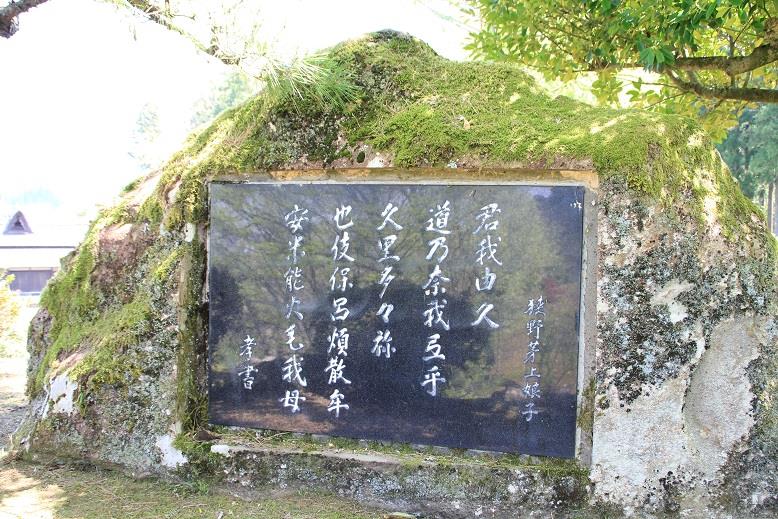 狭野茅上娘子
君我由久
道乃奈我弖乎
久里多々祢
也伎保呂煩散牟
安米能火毛我母
孝書